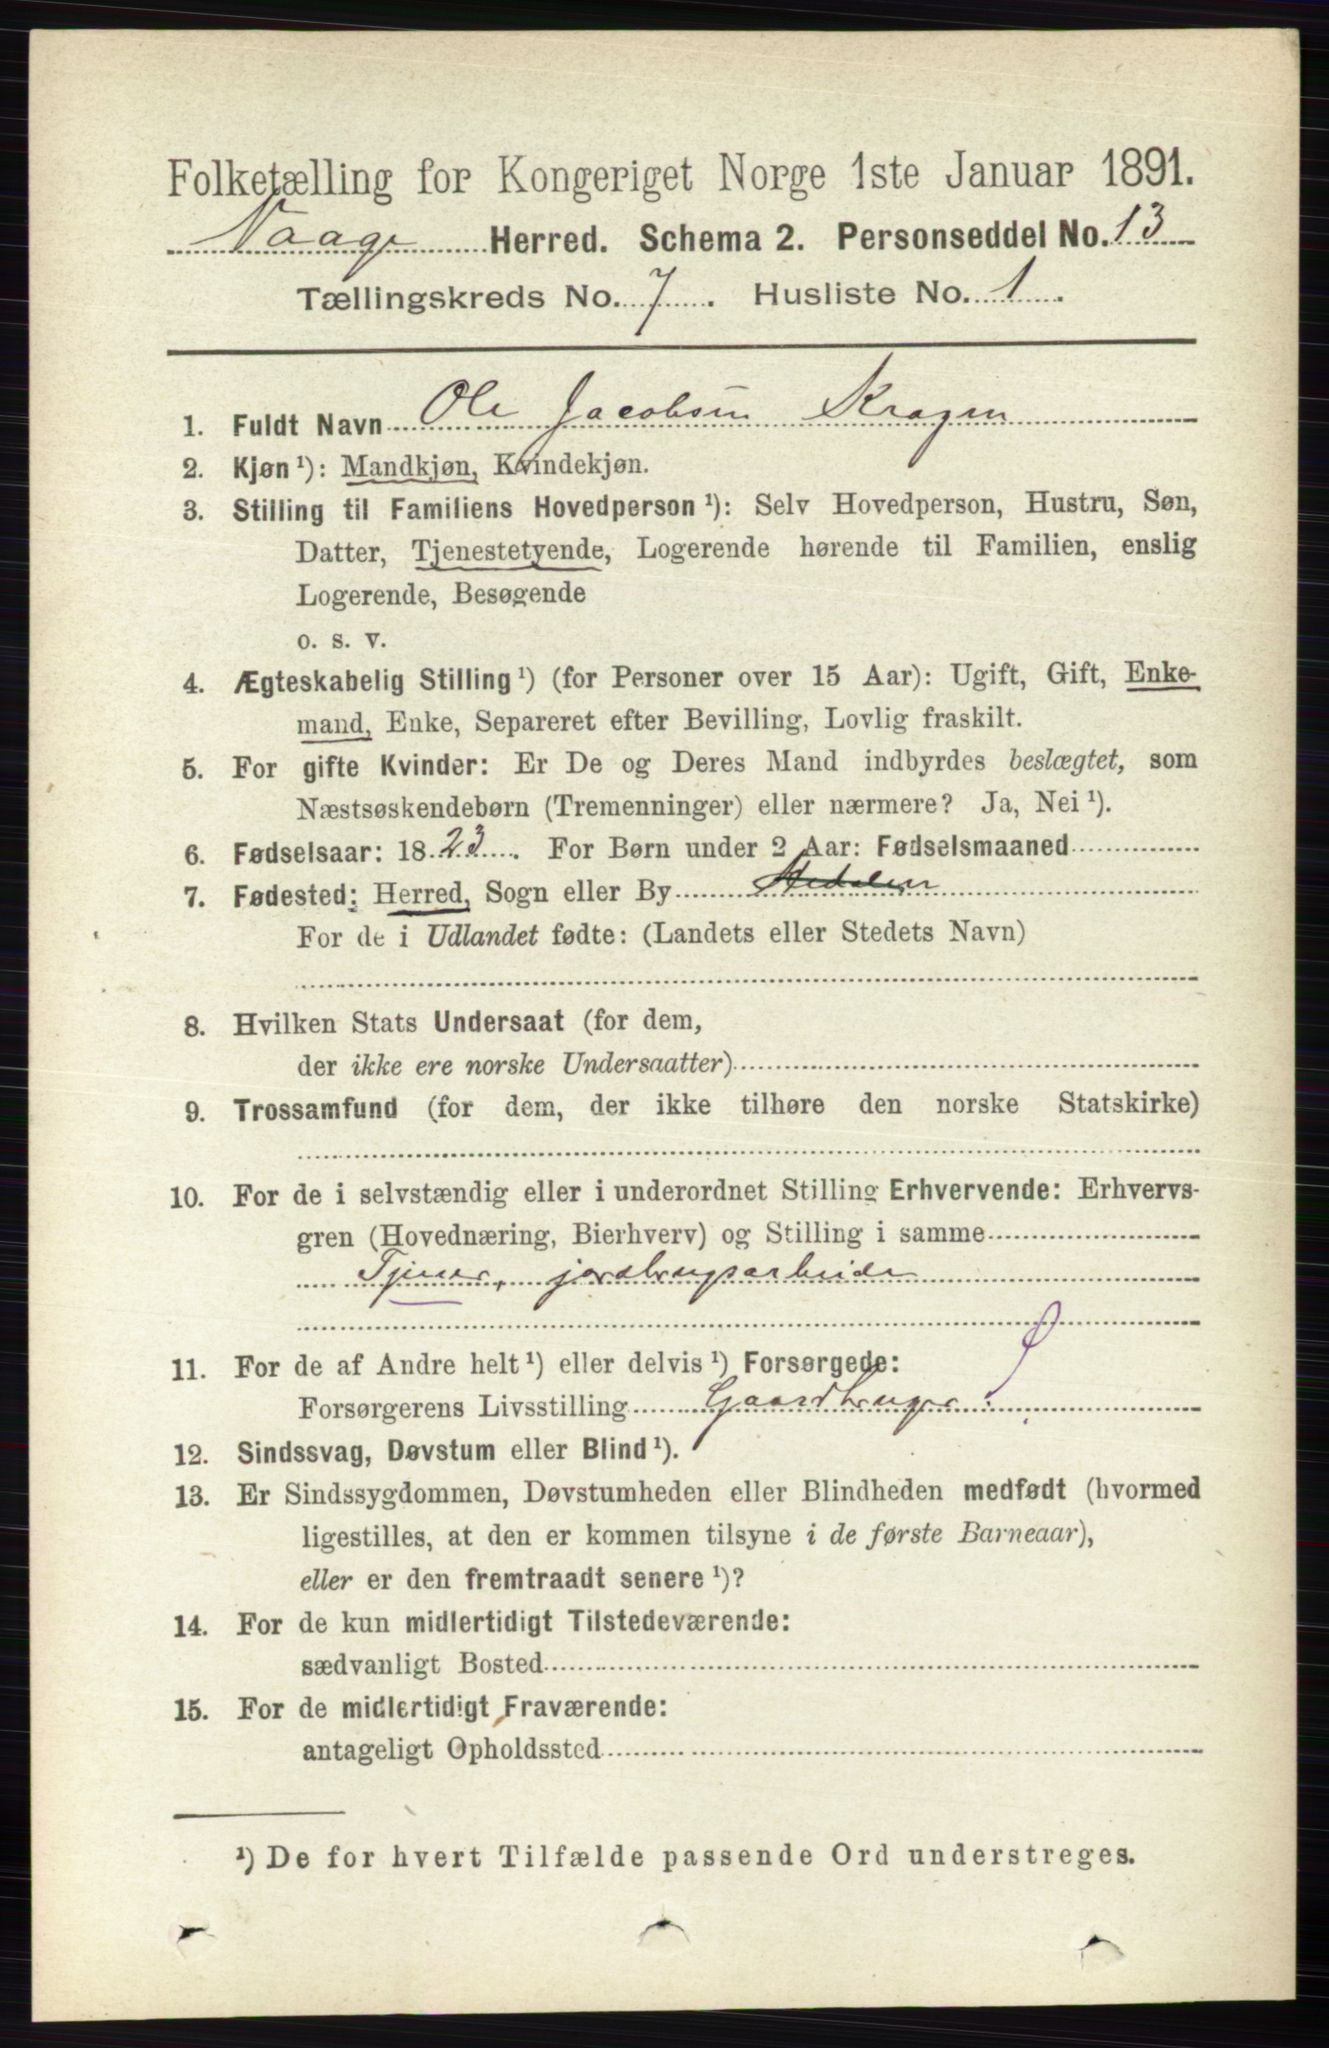 Folketælling for Kongeriget Norge 1ste Januar 1891.
Vaage Herred. Schema 2. Personseddel No. 13
Tællingskreds No. 7. Husliste No. 1.
1. Fuldt Navn Ole Jacobsen
2. Kjøn ¹): Mandkjøn, Kvindekjøn.
3. Stilling til Familiens Hovedperson ¹): Selv Hovedperson, Hustru, Søn,
Datter, Tjenestetyende, Logerende hørende til Familien, enslig
Logerende, Besøgende
o. s. v.
4. Ægteskabelig Stilling ¹) (for Personer over 15 Aar): Ugift, Gift, Enke-
mand, Enke, Separeret efter Bevilling, Lovlig fraskilt.
5. For gifte Kvinder: Er De og Deres Mand indbyrdes beslægtet, som
Næstsøskendebørn (Tremenninger) eller nærmere? Ja, Nei ¹).
6. Fødselsaar: 1823. For Børn under 2 Aar: Fødselsmaaned
7. Fødested: Herred, Sogn eller By Hedalen
For de i Udlandet fødte: (Landets eller Stedets Navn)
8. Hvilken Stats Undersaat (for dem,
der ikke ere norske Undersaatter)
9. Trossamfund (for dem, der ikke tilhøre den norske Statskirke)
10. For de i selvstændig eller i underordnet Stilling Erhvervende: Erhvervs-
gren (Hovednæring, Bierhverv) og Stilling i samme
Tjener, jordbrugsarbeide
11. For de af Andre helt ¹) eller delvis ¹) Forsørgede:
Forsørgerens Livsstilling Gaardbruger
12. Sindssvag, Døvstum eller Blind ¹).
13. Er Sindssygdommen, Døvstumheden eller Blindheden medfødt (hvormed
ligestilles, at den er kommen tilsyne i de første Barneaar),
eller er den fremtraadt senere ¹)?
14. For de kun midlertidigt Tilstedeværende:
sædvanligt Bosted
15. For de midlertidigt Fraværende:
antageligt Opholdssted
¹) De for hvert Tilfælde passende Ord understreges.